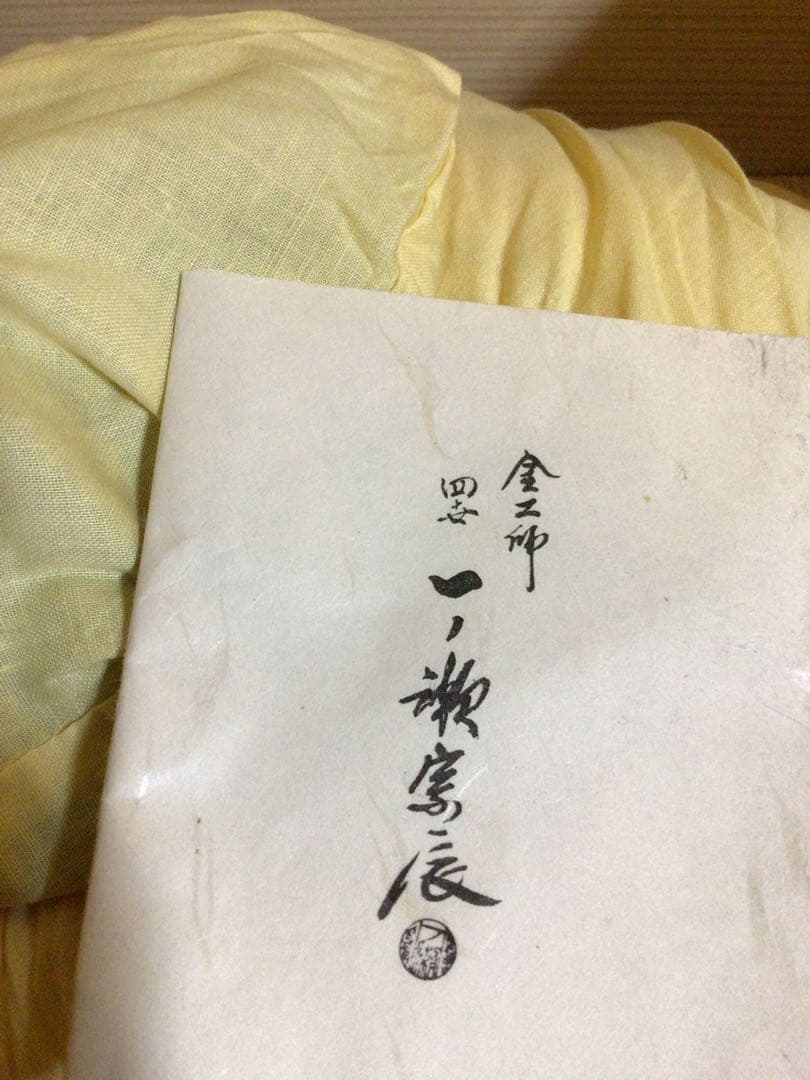 金工師
四世
一ノ瀬宗辰